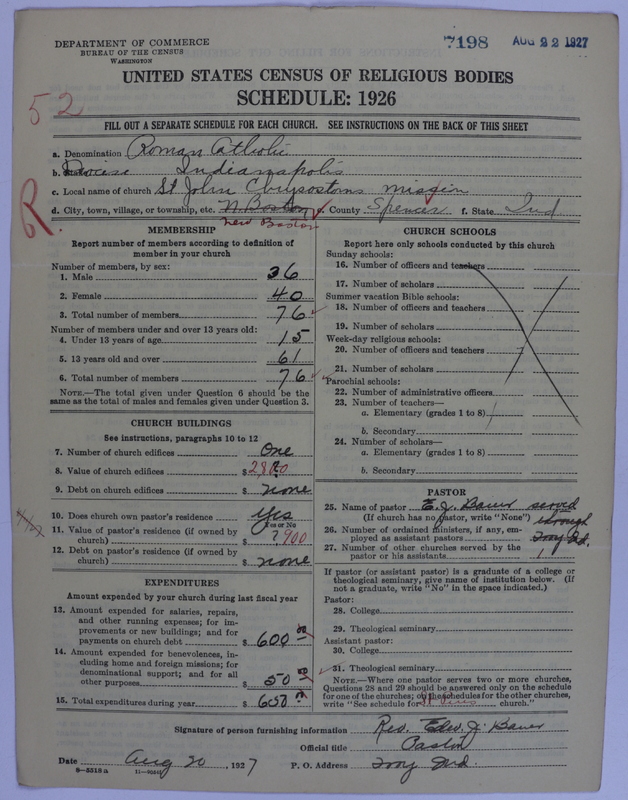 DEPARTMENT OF COMMERCE
BUREAU OF THE CENSUS
WASHINGTON
7198 AUG 22 1927
UNITED STATES CENSUS OF RELIGIOUS BODIES
SCHEDULE: 1926
52
FILL OUT A SEPARATE SCHEDULE FOR EACH CHURCH. SEE INSTRUCTIONS ON THE BACK OF THIS SHEET
R.
a. Denomination Roman Catholic
b. Indianapolis
c. Local name of church St John Chrysostoms mission
d. City, town, village, or township, etc. N. Boston County Spencer f. State Ind
new Boston
MEMBERSHIP
Report number of members according to definition of
member in your church
Number of members, by sex:
1. Male 36
2. Female 40
3. Total number of members 76
Number of members under and over 13 years old:
4. Under 13 years of age 15
5. 13 years old and over 61
6. Total number of members 76
NOTE.—The total given under Question 6 should be the
same as the total of males and females given under Question 3.
CHURCH BUILDINGS
See instructions, paragraphs 10 to 12
7. Number of church edifices One
8. Value of church edifices $
9. Debt on church edifices $ none
10. Does church own pastor's residence yes
Yes or No
11. Value of pastor's residence (if owned by
church) $ ? 900
12. Debt on pastor's residence (if owned by
church) $ none
EXPENDITURES
Amount expended by your church during last fiscal year
13. Amount expended for salaries, repairs,
and other running expenses; for im-
provements or new buildings; and for
payments on church debt $ 600
14. Amount expended for benevolences, in-
cluding home and foreign missions; for
denominational support; and for all
other purposes $ 50
15. Total expenditures during year $ 650
CHURCH SCHOOLS
Report here only schools conducted by this church
Sunday schools:
16. Number of officers and teachers
17. Number of scholars
Summer vacation Bible schools:
18. Number of officers and teachers
19. Number of scholars
Week-day religious schools:
20. Number of officers and teachers
21. Number of scholars
Parochial schools:
22. Number of administrative officers
23. Number of teachers—
a. Elementary (grades 1 to 8)
b. Secondary
24. Number of scholars—
a. Elementary (grades 1 to 8)
b. Secondary
PASTOR
25. Name of pastor E. J. Bauer served
(If church has no pastor, write "None") through
26. Number of ordained ministers, if any, em-
ployed as assistant pastors Troy Ind.
27. Number of other churches served by the
pastor or his assistants 1
If pastor (or assistant pastor) is a graduate of a college or
theological seminary, give name of institution below. (If
not a graduate, write "No" in the space indicated.)
Pastor:
28. College
29. Theological seminary
Assistant pastor:
30. College
31. Theological seminary
NOTE.—Where one pastor serves two or more churches,
Questions 28 and 29 should be answered only on the schedule
for one of the churches; on the schedules for the other churches,
write "See schedule for St Pius church."
Signature of person furnishing information Rev. Edw. J. Bauer
Official title Pastor
Date Aug 20, 1927 P. O. Address Troy Ind.
8—5518 a